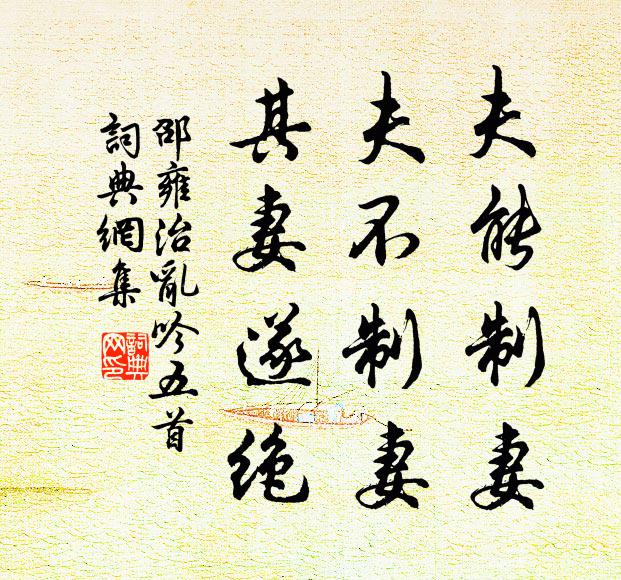 夫能制妻
夫不制妻
其妻遂絶
邵雍治亂吟五首
詞典網集
詞典
网印